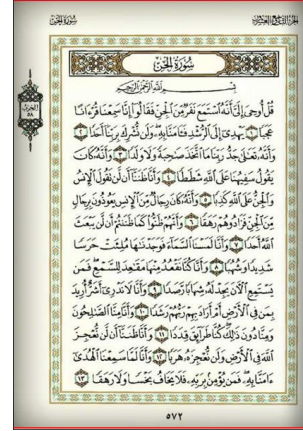 سُورَةُ الجِنِّ
سُورَةُ الجِنِّ
بِسْمِ اللَّهِ الرَّحْمَٰنِ الرَّحِيمِ
قُلْ أُوحِىَ إِلَىَّ أَنَّهُ ٱسْتَمَعَ نَفَرٌ مِّنَ ٱلْجِنِّ فَقَالُوٓا۟ إِنَّا سَمِعْنَا قُرْءَانًا
عَجَبًا ١ يَهْدِىٓ إِلَى ٱلرُّشْدِ فَـَٔامَنَّا بِهِۦ وَلَن نُّشْرِكَ بِرَبِّنَآ أَحَدًا ٢
وَأَنَّهُۥ تَعَٰلَىٰ جَدُّ رَبِّنَا مَا ٱتَّخَذَ صَٰحِبَةً وَلَا وَلَدًا ٣ وَأَنَّهُۥ كَانَ
يَقُولُ سَفِيهُنَا عَلَى ٱللَّهِ شَطَطًا ٤ وَأَنَّا ظَنَنَّآ أَن لَّن تَقُولَ ٱلْإِنسُ
وَٱلْجِنُّ عَلَى ٱللَّهِ كَذِبًا ٥ وَأَنَّهُۥ كَانَ رِجَالٌ مِّنَ ٱلْإِنسِ يَعُوذُونَ بِرِجَالٍ
مِّنَ ٱلْجِنِّ فَزَادُوهُمْ رَهَقًا ٦ وَأَنَّهُمْ ظَنُّوا۟ كَمَا ظَنَنتُمْ أَن لَّن يَبْعَثَ
ٱللَّهُ أَحَدًا ٧ وَأَنَّا لَمَسْنَا ٱلسَّمَآءَ فَوَجَدْنَٰهَا مُلِئَتْ حَرَسًا
شَدِيدًا وَشُهُبًا ٨ وَأَنَّا كُنَّا نَقْعُدُ مِنْهَا مَقَٰعِدَ لِلسَّمْعِ فَمَن
يَسْتَمِعِ ٱلْـَٔانَ يَجِدْ لَهُۥ شِهَابًا رَّصَدًا ٩ وَأَنَّا لَا نَدْرِىٓ أَشَرٌّ أُرِيدَ
بِمَن فِى ٱلْأَرْضِ أَمْ أَرَادَ بِهِمْ رَبُّهُمْ رَشَدًا ١٠ وَأَنَّا مِنَّا ٱلصَّٰلِحُونَ
وَمِنَّا دُونَ ذَٰلِكَ كُنَّا طَرَآئِقَ قِدَدًا ١١ وَأَنَّا ظَنَنَّآ أَن لَّن نُّعْجِزَ
ٱللَّهَ فِى ٱلْأَرْضِ وَلَن نُّعْجِزَهُۥ هَرَبًا ١٢ وَأَنَّا لَمَّا سَمِعْنَا ٱلْهُدَىٰٓ
ءَامَنَّا بِهِۦ فَمَن يُؤْمِنۢ بِرَبِّهِۦ فَلَا يَخَافُ بَخْسًا وَلَا رَهَقًا ١٣
الحزب
٥٨
٥٧٢